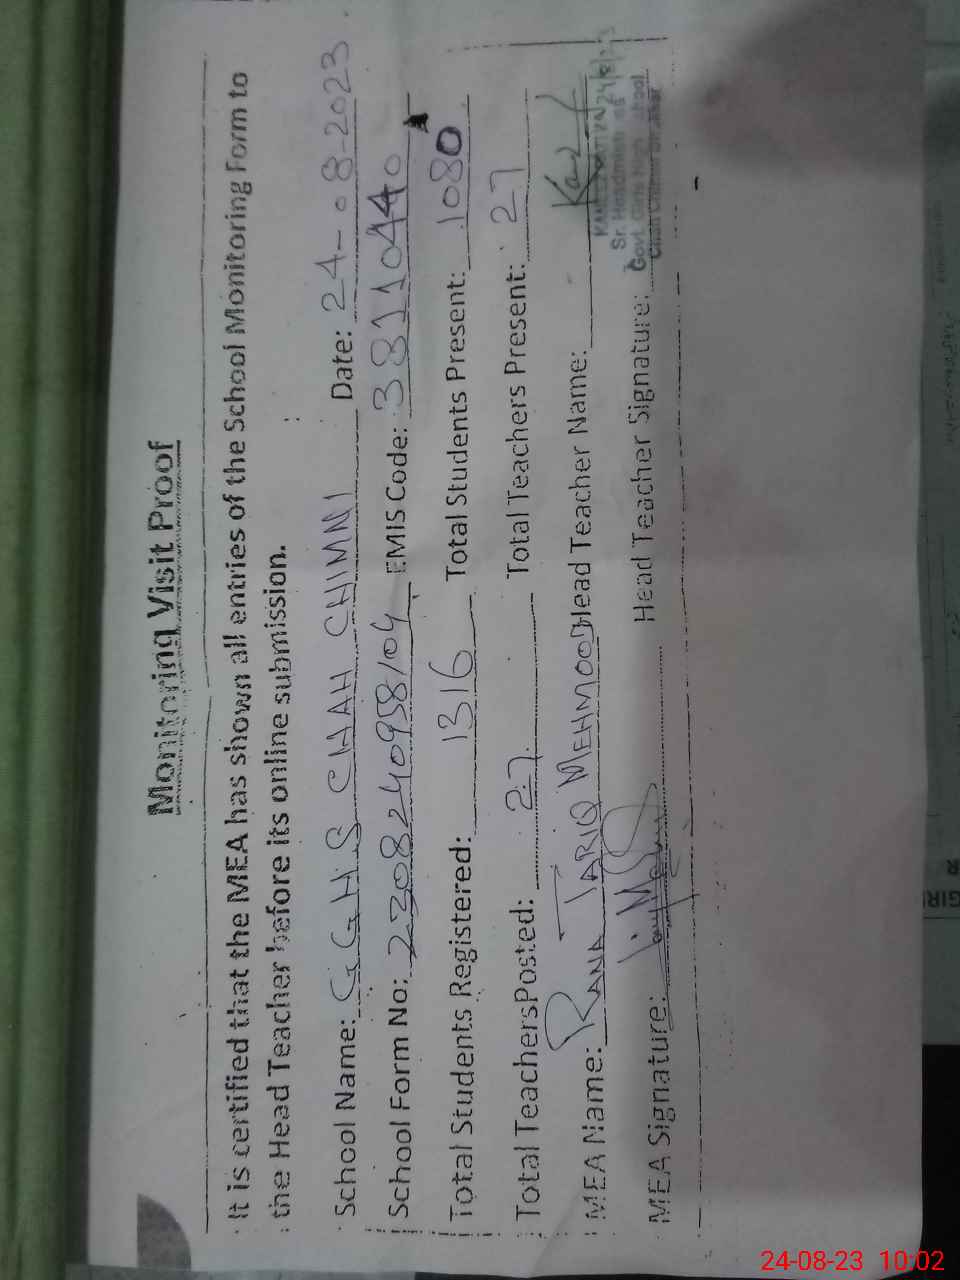 Monitoring Visit Proof
It is certified that the MEA has shown all entries of the School Monitoring Form to
the Head Teacher before its online submission.
School Name: G G H S CHAH CHIMNI Date: 24-08-2023
School Form No: 2308240958104 EMIS Code: 38110440
Total Students Registered: 1316 Total Students Present: 1080
Total TeachersPosted: 27 Total Teachers Present: 27
MEA Name: RANA TARIQ MEHMOOD Head Teacher Name:
MEA Signature: Head Teacher Signature:
24/8/23
Sr. Headmistress
Govt. Girls High School
24-08-23 10:02